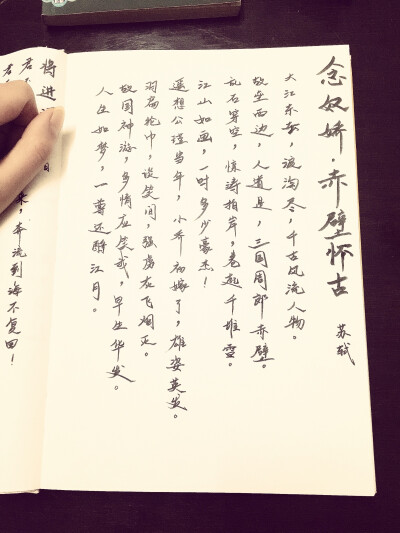 念奴娇·赤壁怀古
苏轼
大江东去，浪淘尽，千古风流人物。
故垒西边，人道是，三国周郎赤壁。
乱石穿空，惊涛拍岸，卷起千堆雪。
江山如画，一时多少豪杰！
遥想公瑾当年，小乔初嫁了，雄姿英发。
羽扇纶巾，谈笑间，强虏灰飞烟灭。
故国神游，多情应笑我，早生华发。
人生如梦，一尊还酹江月。
将进
君 来，奔流到海不复回！